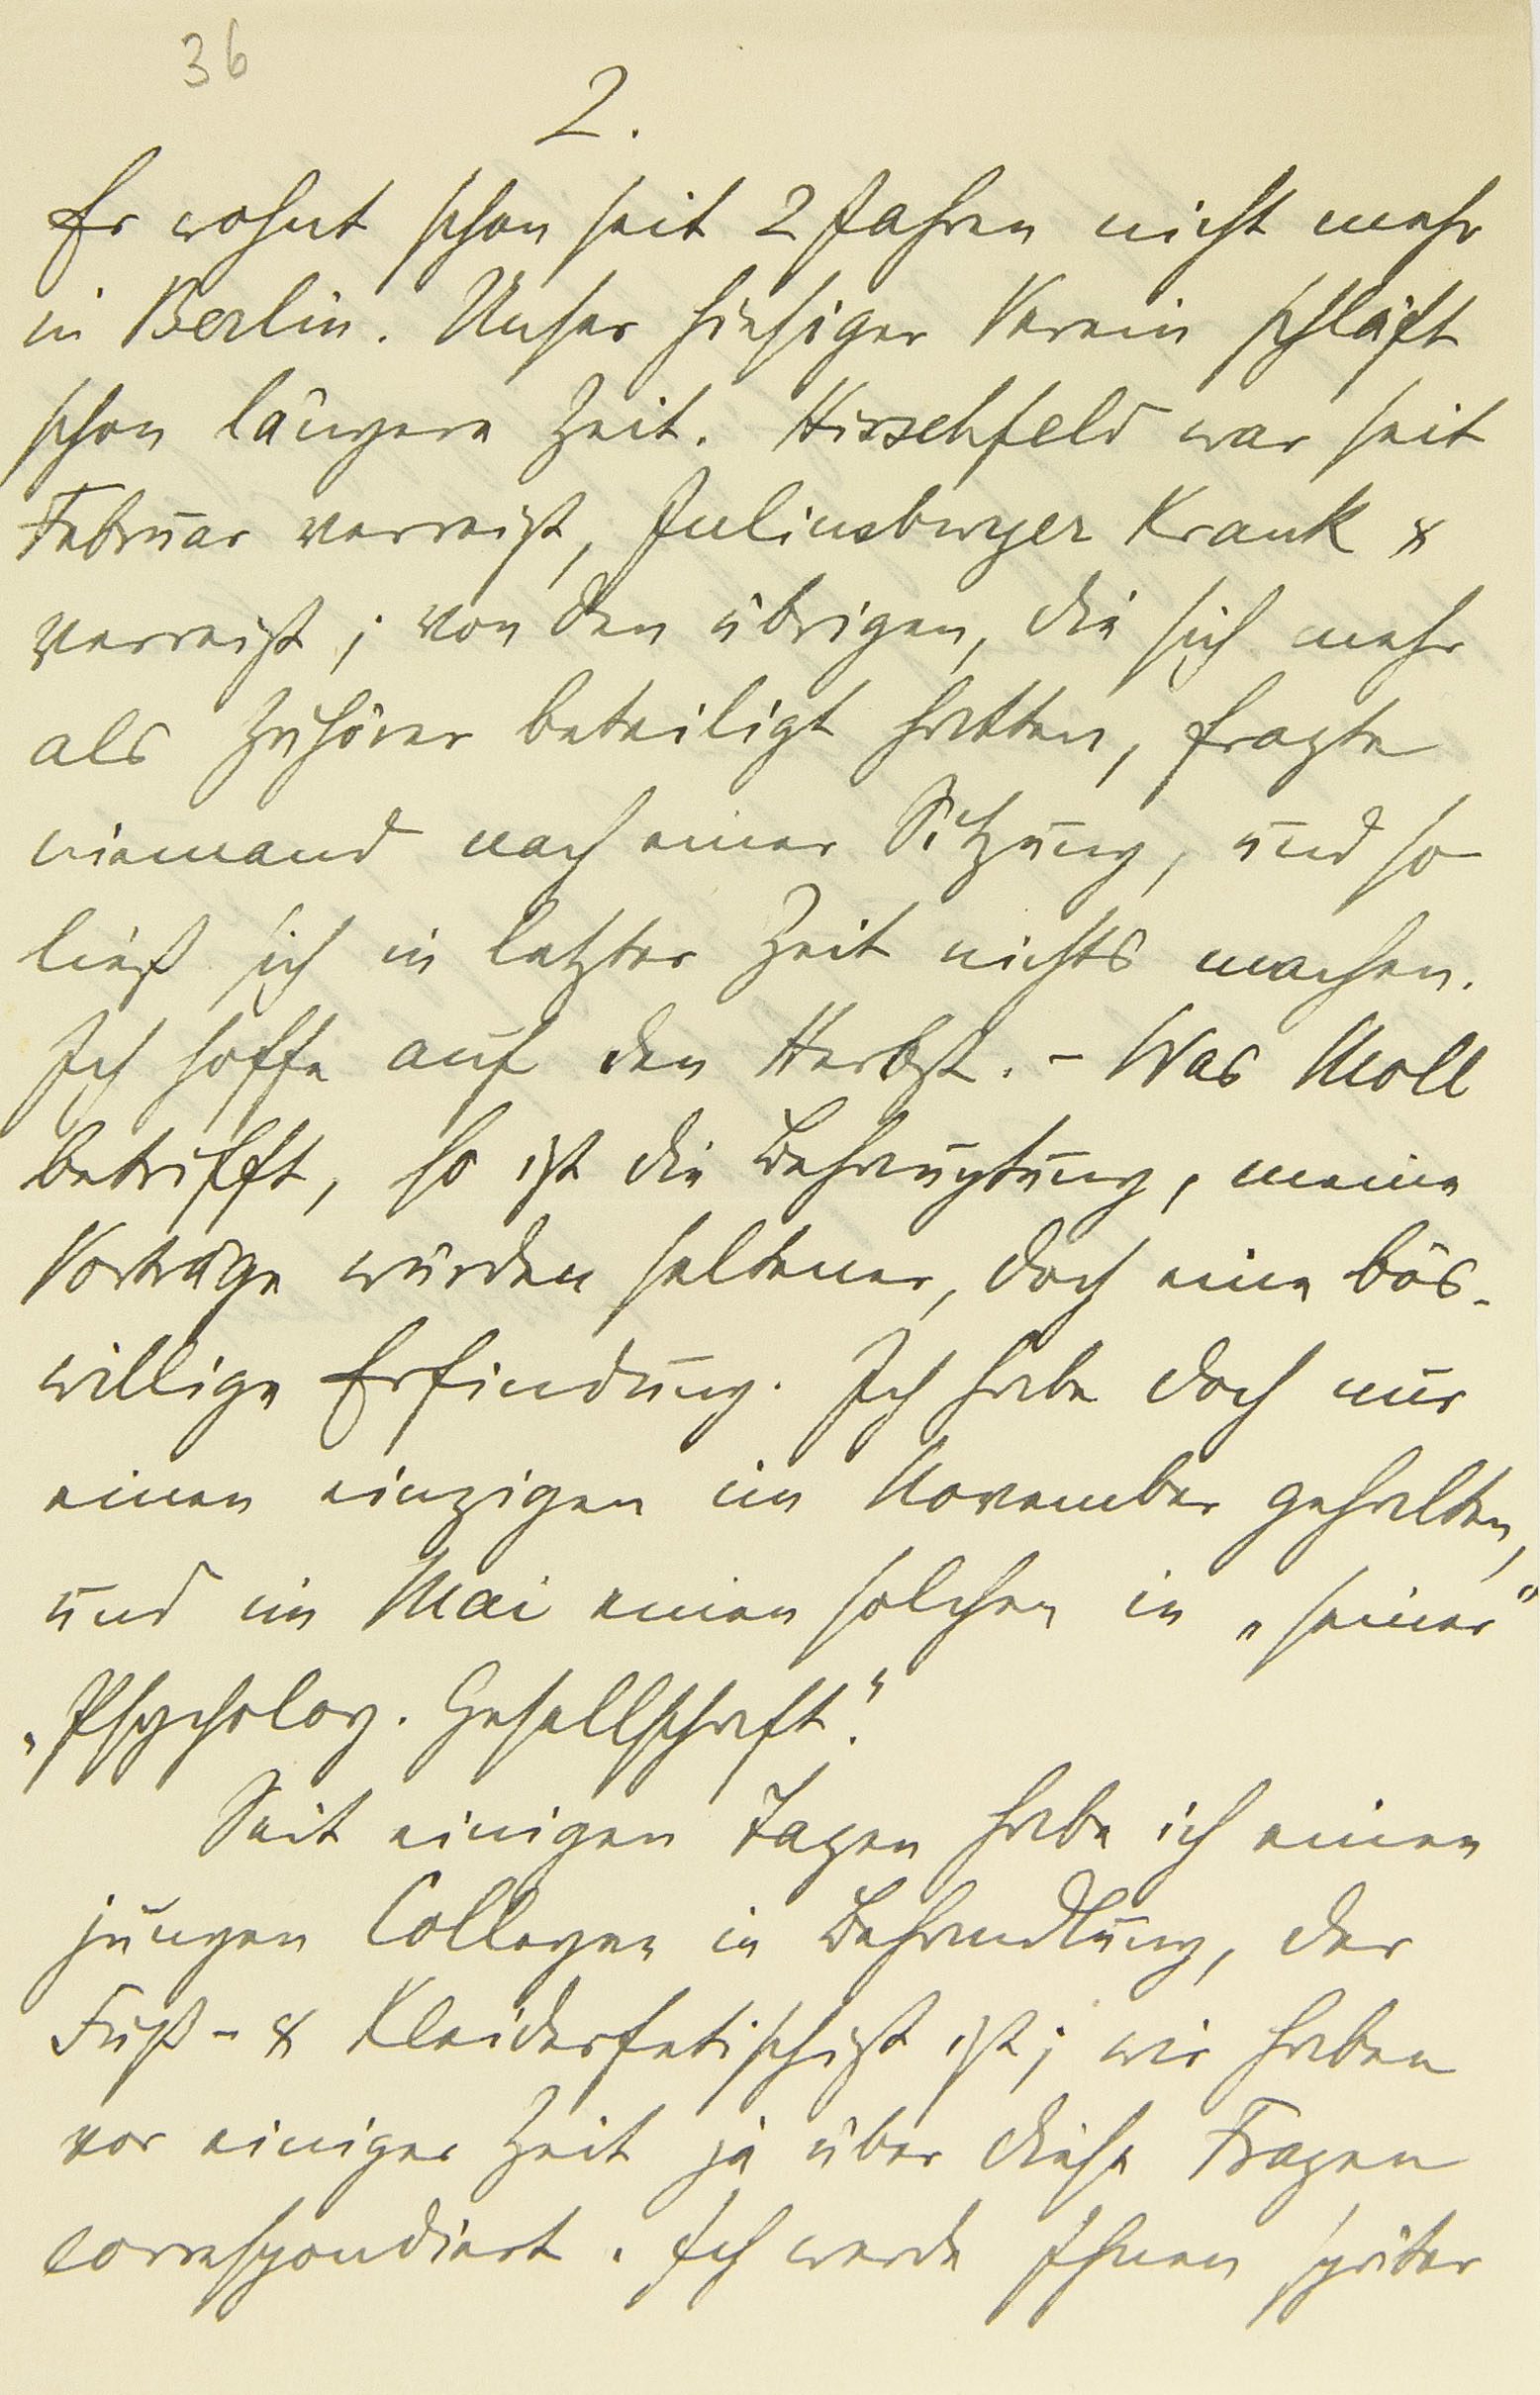 36
2.
Er wohnt schon seit 2 Jahren nicht mehr
in Berlin. Unser hiesiger Verein schläft
schon längere Zeit. Hirschfeld war seit
Februar verreist, Juliusburger krank &
verreist; von den übrigen, die sich mehr
als Zuhörer beteiligt hatten, fragte
niemand nach einer Sitzung, und so
ließ sich in letzter Zeit nichts machen.
Ich hoffe auf den Herbst. – Was Moll
betrifft, so ist die Behauptung, meine
Vorträge würden seltener, doch eine bös-
willige Erfindung. Ich habe doch nur
einen einzigen im November gehalten,
und im Mai einen solchen in „seiner"
„Psycholog. Gesellschaft".
Seit einigen Tagen habe ich einen
jungen Collegen in Behandlung, der
Fuß- & Kleiderfetischist ist; wir haben
vor einiger Zeit ja über diese Fragen
correspondiert. Ich werde Ihnen später